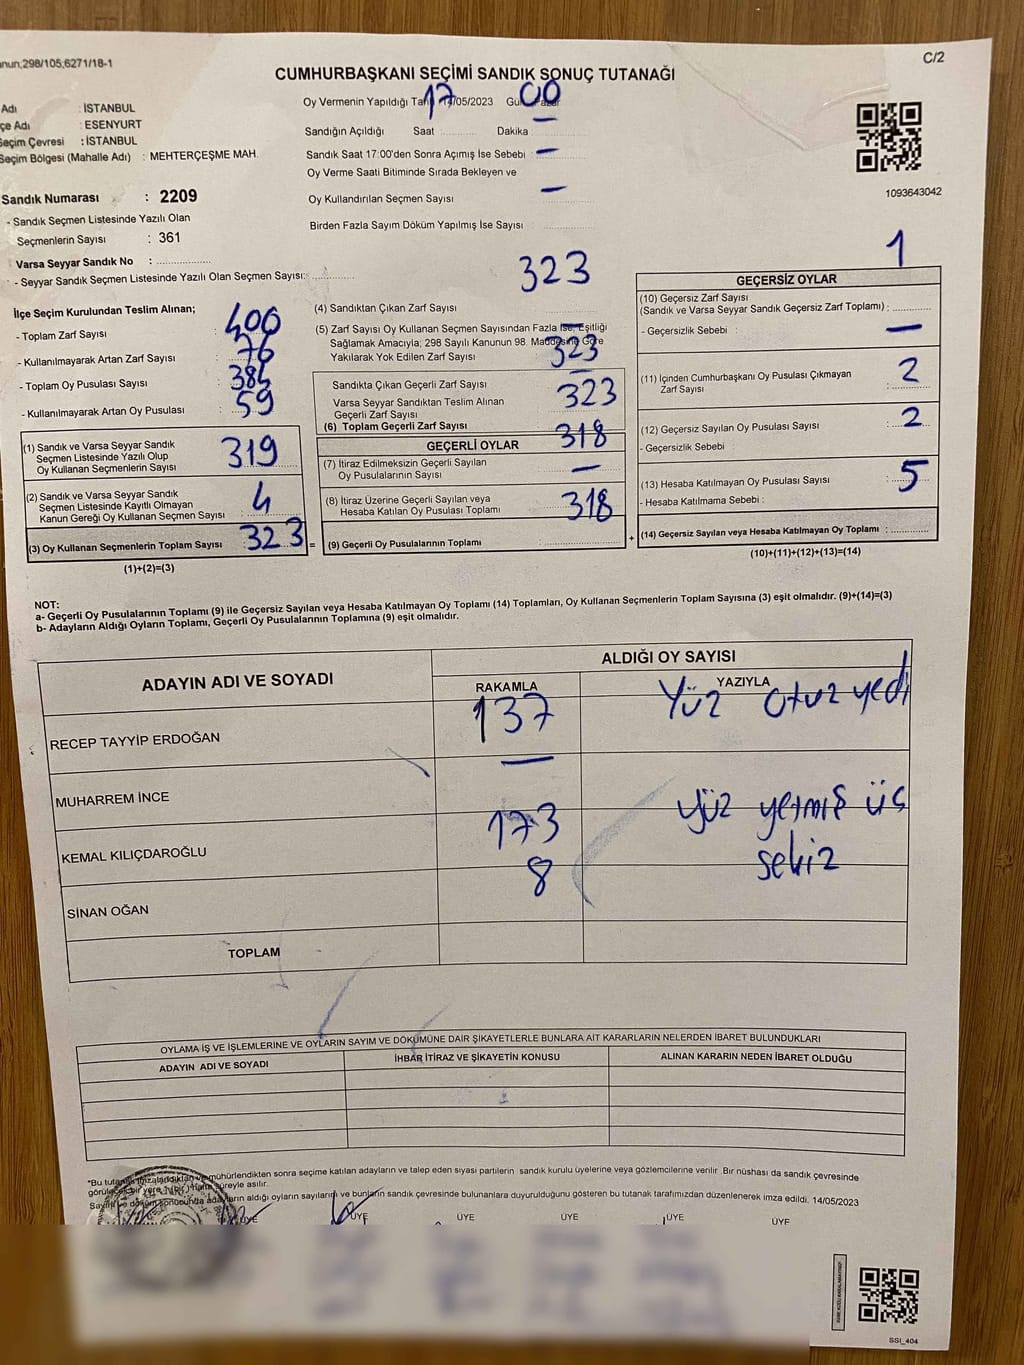 anun,298/105,6271/18-1
C/2
CUMHURBAŞKANI SEÇİMİ SANDIK SONUÇ TUTANAĞI
Adı : İSTANBUL
çe Adı : ESENYURT
Seçim Çevresi : İSTANBUL
Seçim Bölgesi (Mahalle Adı) : MEHTERÇEŞME MAH.
Sandık Numarası : 2209
- Sandık Seçmen Listesinde Yazılı Olan
Seçmenlerin Sayısı : 361
Varsa Seyyar Sandık No :
- Seyyar Sandık Seçmen Listesinde Yazılı Olan Seçmen Sayısı:
Oy Vermenin Yapıldığı 14/05/2023
17 00
Sandığın Açıldığı Saat Dakika
Sandık Saat 17:00'den Sonra Açımış İse Sebebi —
Oy Verme Saati Bitiminde Sırada Bekleyen ve
Oy Kullandırılan Seçmen Sayısı —
Birden Fazla Sayım Döküm Yapılmış İse Sayısı
1093643042
İlçe Seçim Kurulundan Teslim Alınan;
- Toplam Zarf Sayısı : 400
- Kullanılmayarak Artan Zarf Sayısı : 76
- Toplam Oy Pusulası Sayısı : 384
- Kullanılmayarak Artan Oy Pusulası : 59
(1) Sandık ve Varsa Seyyar Sandık
Seçmen Listesinde Yazılı Olup
Oy Kullanan Seçmenlerin Sayısı
319
(2) Sandık ve Varsa Seyyar Sandık
Seçmen Listesinde Kayıtlı Olmayan
Kanun Gereği Oy Kullanan Seçmen Sayısı
4
(3) Oy Kullanan Seçmenlerin Toplam Sayısı 323 =
(1)+(2)=(3)
323
(4) Sandıktan Çıkan Zarf Sayısı
(5) Zarf Sayısı Oy Kullanan Seçmen Sayısından Fazla İse, Eşitliği —
Sağlamak Amacıyla; 298 Sayılı Kanunun 98. Maddesine Göre
Yakılarak Yok Edilen Zarf Sayısı
323
Sandıkta Çıkan Geçerli Zarf Sayısı —
Varsa Seyyar Sandıktan Teslim Alınan
Geçerli Zarf Sayısı
323
(6) Toplam Geçerli Zarf Sayısı
GEÇERLİ OYLAR
318
(7) İtiraz Edilmeksizin Geçerli Sayılan
Oy Pusulalarının Sayısı
—
(8) İtiraz Üzerine Geçerli Sayılan veya
Hesaba Katılan Oy Pusulası Toplamı
318
(9) Geçerli Oy Pusulalarının Toplamı +
1
GEÇERSİZ OYLAR
(10) Geçersiz Zarf Sayısı
(Sandık ve Varsa Seyyar Sandık Geçersiz Zarf Toplamı) :
- Geçersizlik Sebebi : —
(11) İçinden Cumhurbaşkanı Oy Pusulası Çıkmayan
Zarf Sayısı
2
(12) Geçersiz Sayılan Oy Pusulası Sayısı 2
- Geçersizlik Sebebi
(13) Hesaba Katılmayan Oy Pusulası Sayısı 5
- Hesaba Katılmama Sebebi :
(14) Geçersiz Sayılan veya Hesaba Katılmayan Oy Toplamı :
(10)+(11)+(12)+(13)=(14)
NOT:
a- Geçerli Oy Pusulalarının Toplamı (9) ile Geçersiz Sayılan veya Hesaba Katılmayan Oy Toplamı (14) Toplamları, Oy Kullanan Seçmenlerin Toplam Sayısına (3) eşit olmalıdır. (9)+(14)=(3)
b- Adayların Aldığı Oyların Toplamı, Geçerli Oy Pusulalarının Toplamına (9) eşit olmalıdır.
ADAYIN ADI VE SOYADI
ALDIĞI OY SAYISI
RAKAMLA YAZIYLA
RECEP TAYYİP ERDOĞAN 137 Yüz otuz yedi
MUHARREM İNCE —
KEMAL KILIÇDAROĞLU 173 yüz yetmiş üç
SİNAN OĞAN 8 sekiz
TOPLAM
OYLAMA İŞ VE İŞLEMLERİNE VE OYLARIN SAYIM VE DÖKÜMÜNE DAİR ŞİKAYETLERLE BUNLARA AİT KARARLARIN NELERDEN İBARET BULUNDUKLARI
ADAYIN ADI VE SOYADI İHBAR İTİRAZ VE ŞİKAYETİN KONUSU ALINAN KARARIN NEDEN İBARET OLDUĞU
mühürlendikten sonra seçime katılan adayların ve talep eden siyasi partilerin sandık kurulu üyelerine veya gözlemcilerine verilir. Bir nüshası da sandık çevresinde
süreyle asılır.
aldığı oyların sayılarını ve bunların sandık çevresinde bulunanlara duyurulduğunu gösteren bu tutanak tarafımızdan düzenlenerek imza edildi. 14/05/2023
ÜYE ÜYE ÜYE ÜYE ÜYE ÜYE
SSI_404